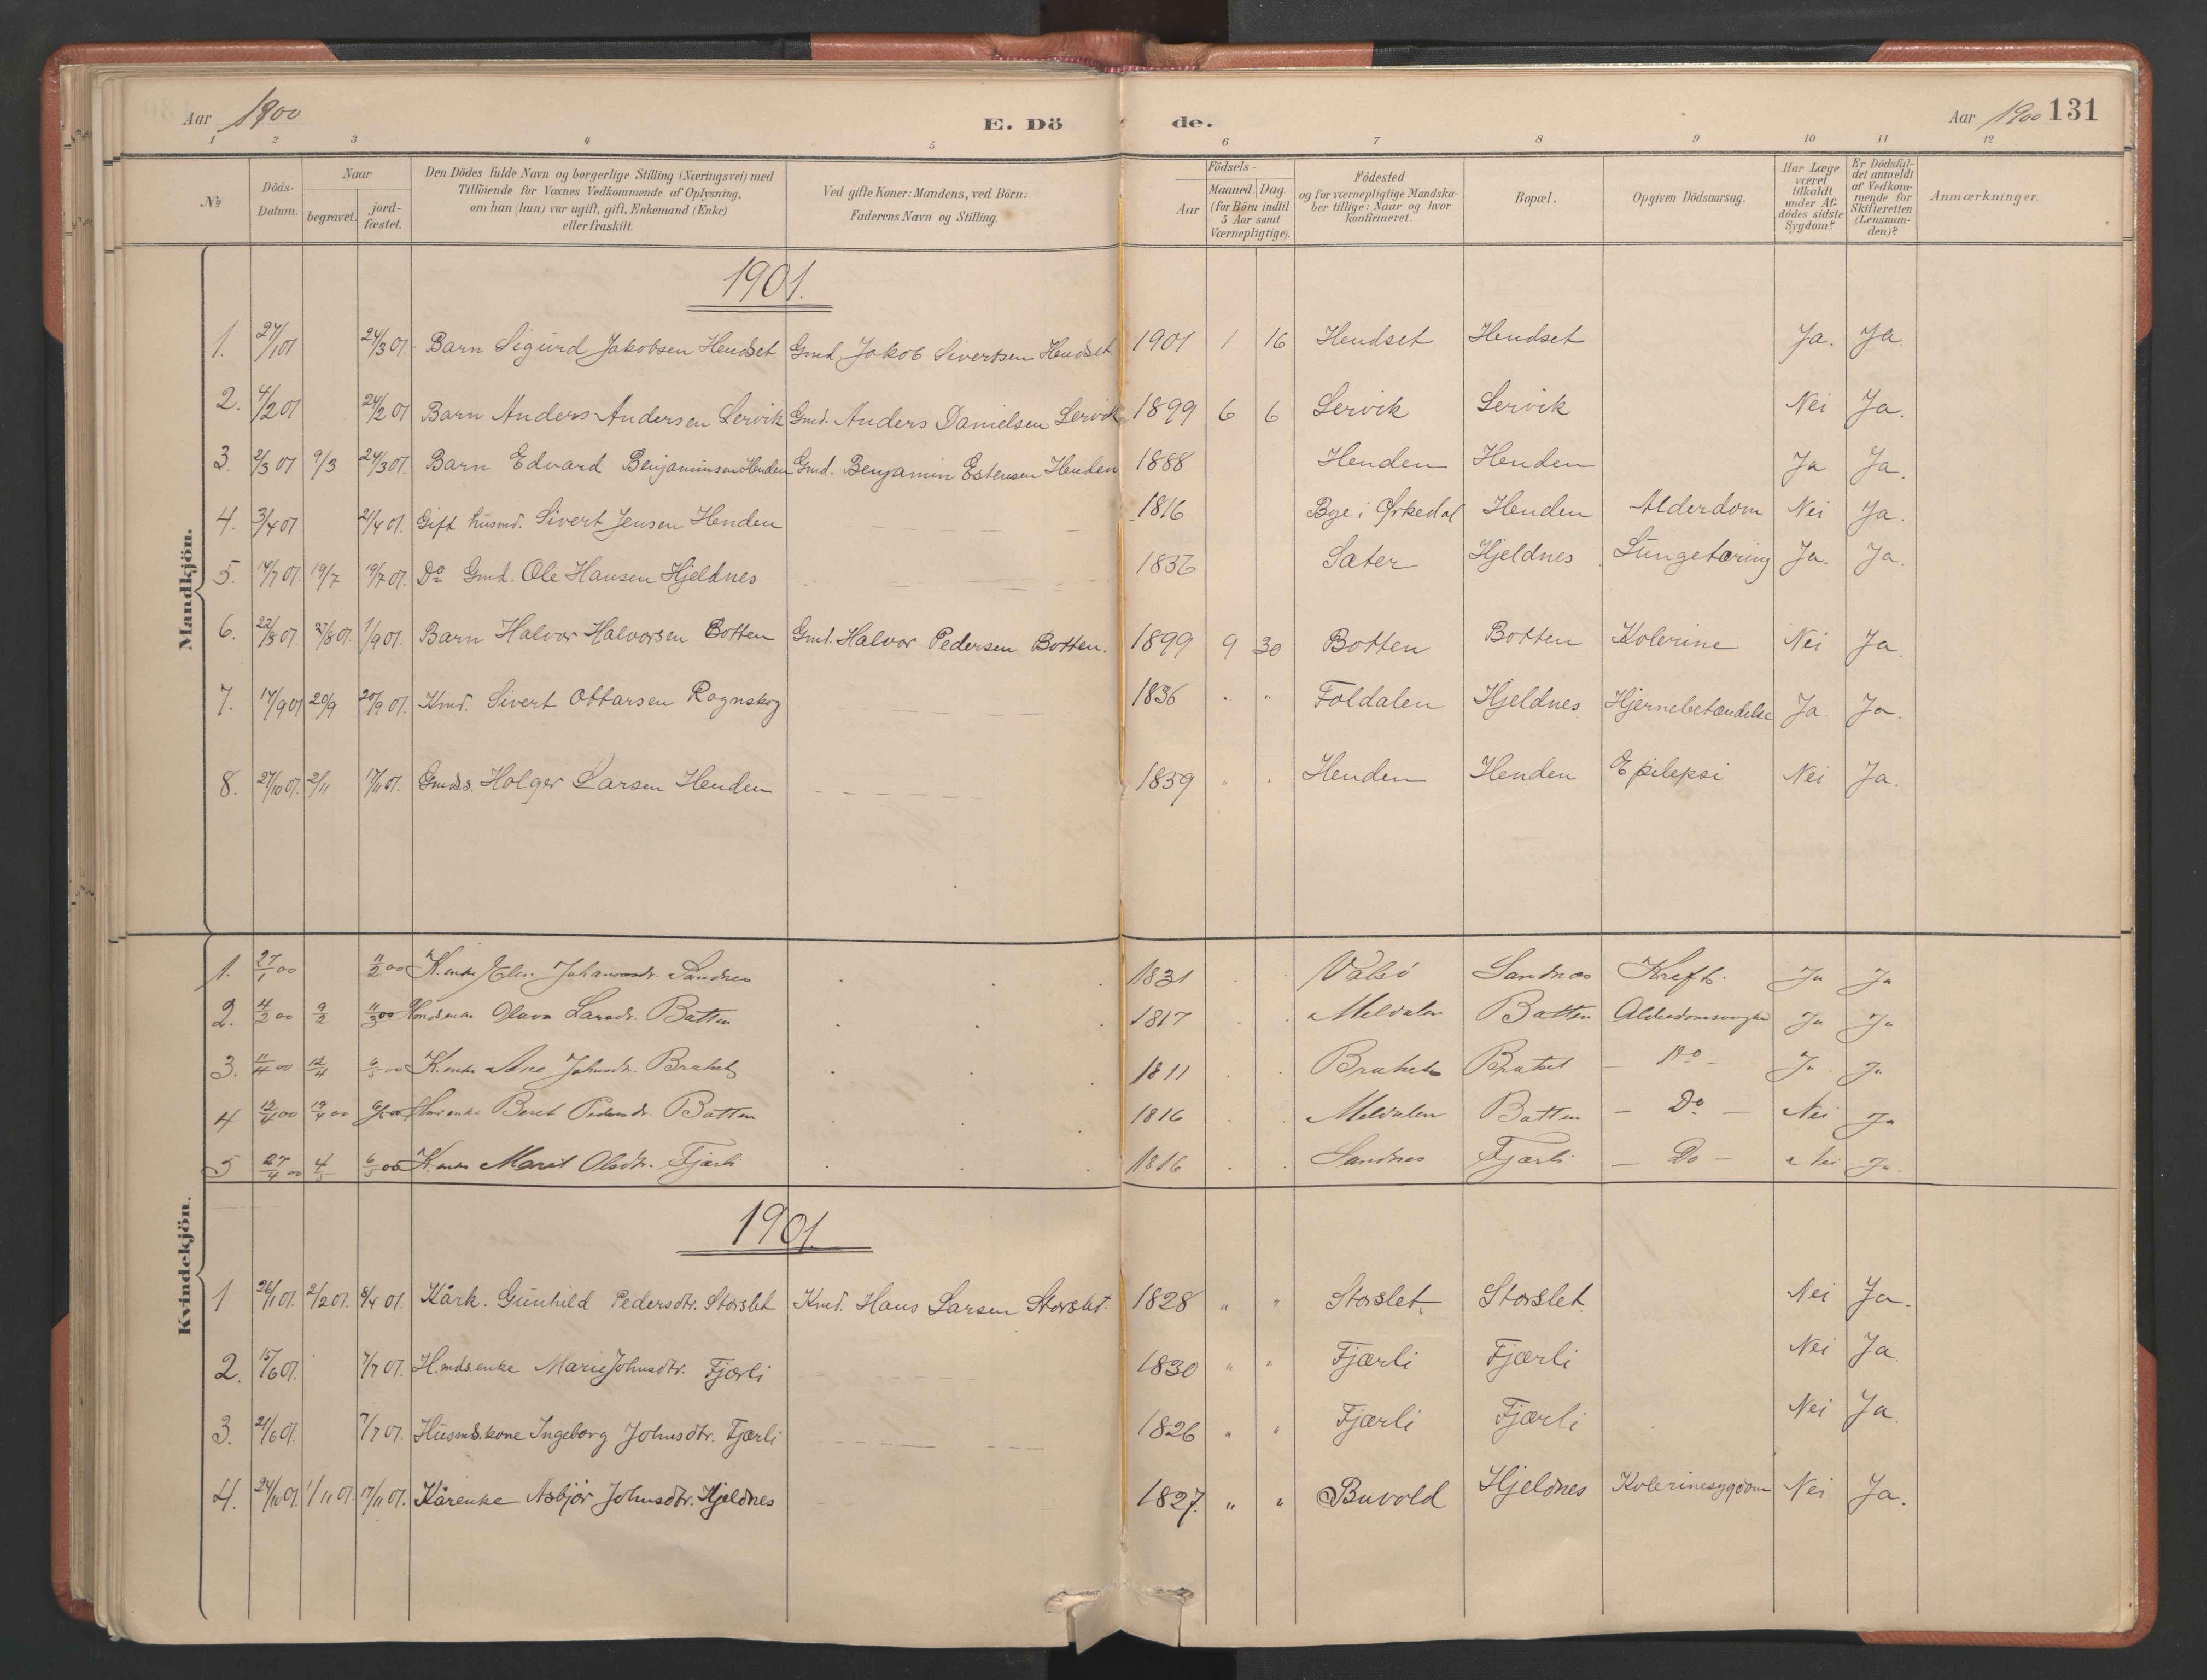 Aar 1900 E. Dö de. Aar 1900 131
1 2 3 4 5 6 7 8 9 10 11 12
№ Döds-Datum. Naar begravet. jord-fæstet. Den Dödes fulde Navn og borgerlige Stilling (Næringsvei) med Tilföiende for Voxnes Vedkommende af Oplysning, om han (hun) var ugift, gift, Enkemand (Enke) eller fraskilt. Ved gifte Koner: Mandens, ved Börn: Faderens Navn og Stilling. Födsels- Aar Maaned. Dag. (for Börn indtil 5 Aar samt Værnepligtige). Födested og for værnepligtige Mandskaber tillige: Naar og hvor konfirmeret. Bopæl. Opgiven Dödsaarsag. Har Læge været tilkaldt under Afdödes sidste Sygdom? Er Dödsfaldet anmeldt af Vedkommende for Skifteretten (Lensmanden)? Anmærkninger.
Mandkjön.
1901.
1. 27/1 01 24/3 01. Barn Sigurd Jakobsen Hendset Gmd. Jakob Sivertsen Hendset 1901 1 16 Hendset Hendset Ja. Ja.
2. 4/2 01 24/2 01 Barn Anders Andersen Lervik Gmd. Anders Danielsen Lervik 1899 6 6 Lervik Lervik Nei Ja.
3. 2/3 01 9/3 24/3 01. Barn Edvard Benjaminsen Henden Gmd. Benjamin Estensen Henden 1888 Henden Henden Ja Ja.
4. 3/4 01 21/4 01. Gift husmd. Sivert Jensen Henden 1816 Bye i Ørkedal Henden Alderdom Nei Ja.
5. 14/7 01. 19/7 19/7 01. Do Gmd. Ole Hansen Hjeldnes 1836 Sæter Hjeldnes Lungetæring Ja. Ja.
6. 22/8 01. 27/8 01. 1/9 01. Barn Halvor Halvorsen Botten Gmd. Halvor Pedersen Botten. 1899 9 30 Botten Botten Kolerine Nei Ja.
7. 14/9 01 20/9 20/9 01. Kmd. Sivert Ottarsen Rognskog 1836 " " Foldalen Hjeldnes Hjernebetændelse Ja. Ja.
8. 27/10 01. 2/11 17/11 01. Gmds.s. Holger Larsen Henden 1859 " " Henden Henden Epilepsi Nei Ja.
Kvindekjön.
1. 27/1 00 11/2 00 K.enke Johannesdr. Sandnes 1831 Valsö Sandnes Kreft. Ja Ja
2. 4/2 00 9/2 11/3 00 Olava Larsdr. Botten 1817 Meldalen Botten Ja Ja
3. 11/4 00 12/4 6/5 00 K.enke Ane Johnsdr. Brakset 1811 Brakset Brakset - Do - Ja Ja
4 15/4 00 19/4 00 6/5 00 Beret Pedersdr. Botten 1816 Meldalen Botten - Do - Nei Ja
5 27/4 00 4/5 6/5 00 K.enke Marit Olsdr. Fjærli 1816 Sandnes Fjærli - Do - Nei Ja.
1901.
1 26/1 01. 2/2 01. 8/4 01. Kårk. Gunhild Pedersdtr. Storslet Kmd. Hans Larsen Storslet. 1828 " " Storslet. Storslet. Nei Ja.
2. 15/6 01. 7/7 01. H.mds.enke Marie Johnsdtr. Fjærli 1830 " " Fjærli Fjærli Nei Ja.
3. 21/6 01. 7/7 01. Husmds.kone Ingeborg Johnsdtr. Fjærli 1826 " " Fjærli Fjærli Nei Ja.
4. 24/10 01. 1/11 01. 17/11 01. Kårenke Asbjør Johnsdtr. Hjeldnes 1827. " " Buvold Hjeldnes Kolerinesygdom Nei Ja.